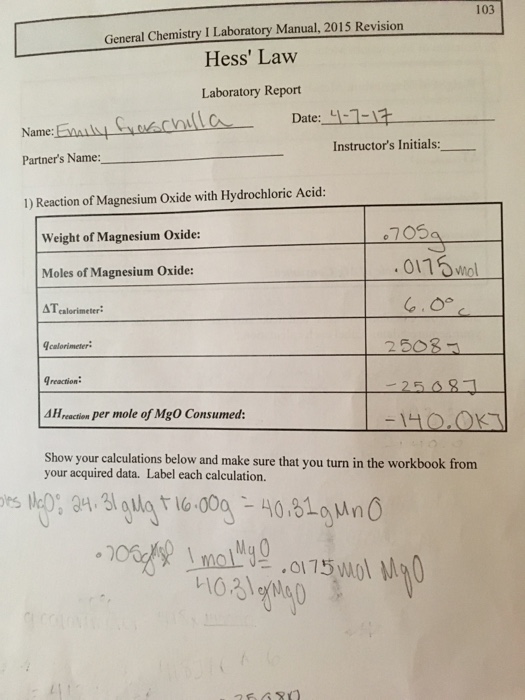 103
General Chemistry I Laboratory Manual, 2015 Revision
Hess' Law
Laboratory Report
Name: Emily Date: 4-7-17
Partner's Name: Instructor's Initials:
1) Reaction of Magnesium Oxide with Hydrochloric Acid:
Weight of Magnesium Oxide: .705g
Moles of Magnesium Oxide: .0175 mol
ΔTcalorimeter: 6.0°c
qcalorimeter: 2508J
qreaction: -2508J
ΔHreaction per mole of MgO Consumed: -140.0KJ
Show your calculations below and make sure that you turn in the workbook from
your acquired data. Label each calculation.
MgO: 24.31gMg + 16.00g = 40.31gMnO
.705gMgO 1 mol MgO = .0175 mol MgO
40.31gMgO